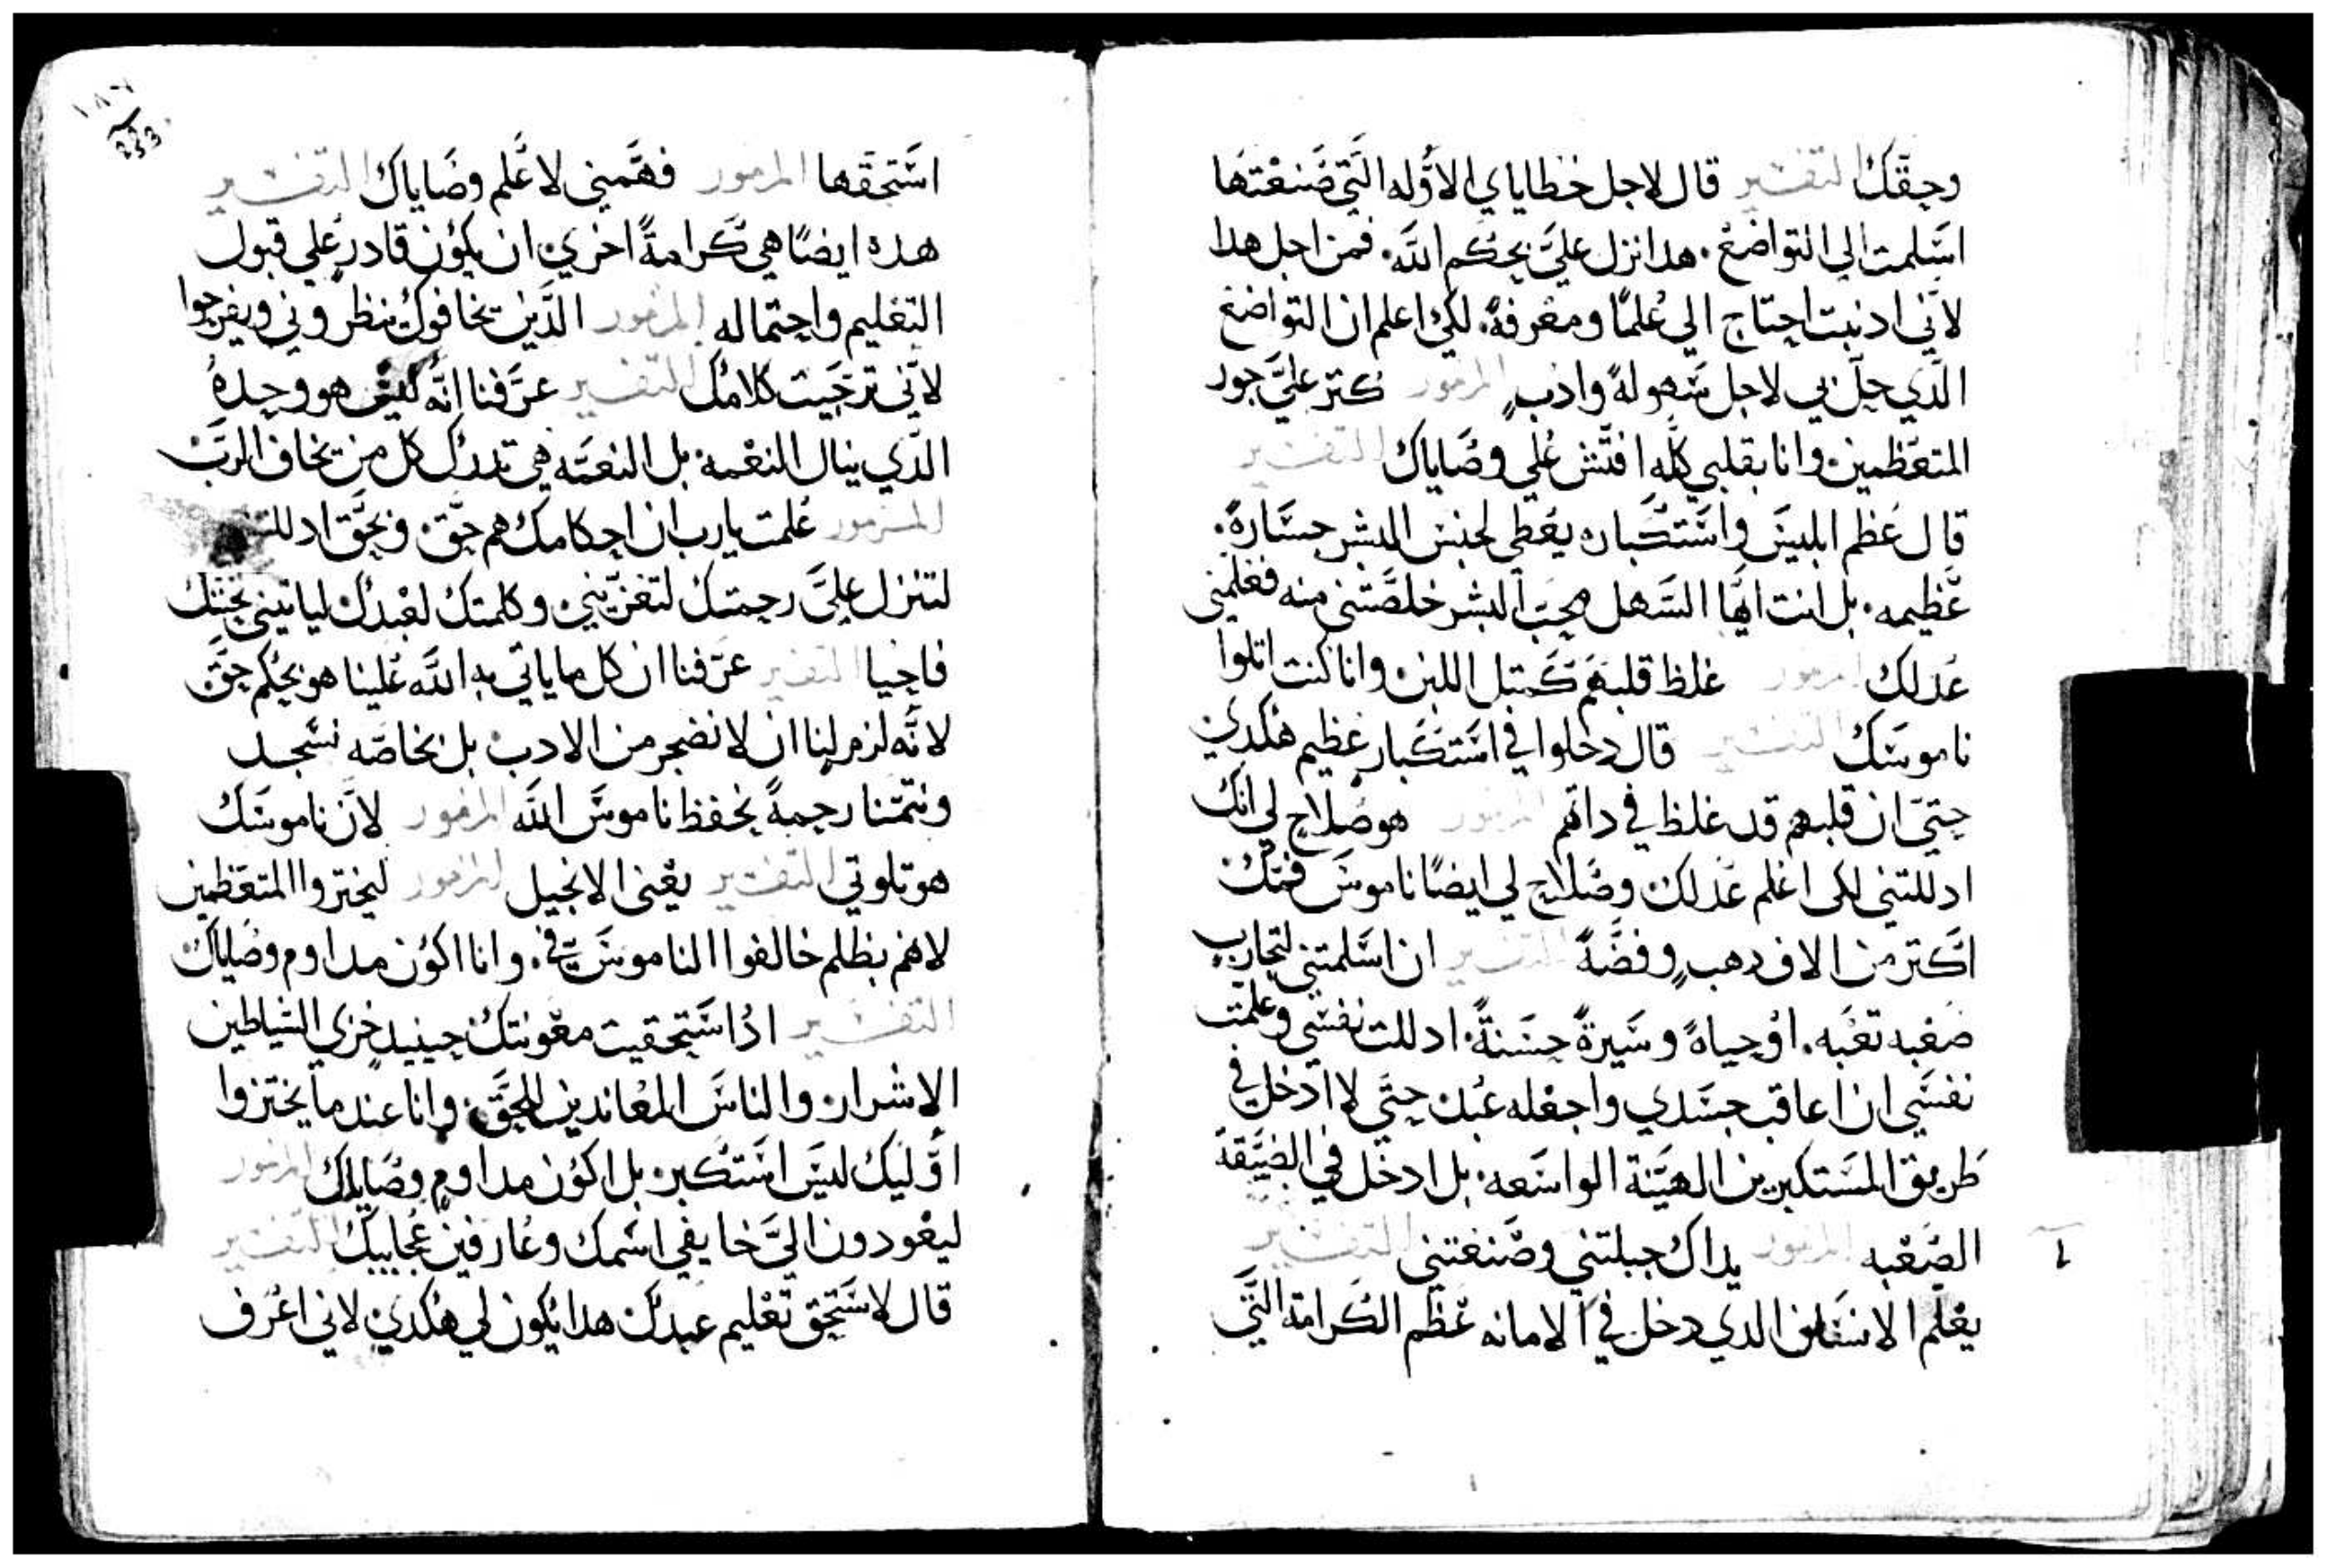 وحقك التفسير قال لاجل خطاياي الاوله التي صنعتها
اسلمت الي التواضع. هدا نزل علي بحكم الله. فمن اجل هدا
لاني ادنبت احتاج الي علما ومعرفة. لكي اعلم ان التواضع
الدي حل بي لاجل سهولة وادب المزمور كتر علي جور
المتعظمين وانا بقلبي كله افتش علي وصاياك التفسير
قال عظم ابليس واستكباره يعطي لجنس البشر خسارة.
عظيمه. بل انت ايها السهل محب البشر خلصتني منه فعلمني
عدلك المزمور غلظ قلبهم كمتل اللبن وانا كنت اتلوا
ناموسك التفسير قال دخلوا في استكبار عظيم هكدي
حتي ان قلبهم قد غلظ في داتهم المزمور هو صلاح لي انك
ادللتني لكى اعلم عدلك وصلاح لي ايضا ناموس فمك
اكتر من الاف دهب وفضة التفسير ان اسلمتني لتجارب
صعبه تعبه. او حياة وسيرة حسنة. ادللت نفسي وعلمت
نفسي ان اعاقب جسدي واجعله عبد حتي لا ادخل في
طريق المستكبرين الهينة الواسعه. بل ادخل في الضيقة
الصعبه المزمور يداك جبلتني وصنعتني التفسير
يعلم الانسان الدي دخل في الامانه عظم الكرامة التي
١٨٦
233
استحقها المزمور فهمني لاعلم وصاياك التفسير
هده ايضا هي كرامة اخري ان يكون قادر علي قبول
التعليم واحتماله المزمور الدين يخافوك ينظروني ويفرحوا
لاني ترجيت كلامك التفسير عرفنا انه ليس هو وحده
الدي ينال النعمه. بل النعمه هي تدرك كل من يخاف الرب
المزمور علمت يارب ان احكامك هم حق. وبحق ادللتني
لتنزل علي رحمتك لتعزيني وكلمتك لعبدك لياتيني تحننك
فاحيا التفسير عرفنا ان كل ما ياتي به الله علينا هو بحكم حق
لانه لزم لنا ان لا نضجر من الادب بل بخاصه نسجد
ونتمنا رحمة بحفظ ناموس الله المزمور لان ناموسك
هو تلاوتي التفسير يعني الانجيل المزمور ليختزوا المتعظمين
لانهم بظلم خالفوا الناموس في. وانا اكون مداوم وصاياك
التفسير ادا استحقيت معونتك حينيد خزي الشياطين
الاشرار. والناس المعاندين للحق. وانا عندما يختزوا
اوليك ليس استكبر. بل اكون مداوم وصاياك المزمور
ليعودون الي خايفي اسمك وعارفين عجايبك التفسير
قال لاستحق تعليم عبدك هدا يكون لي هكدي لاني اعرف